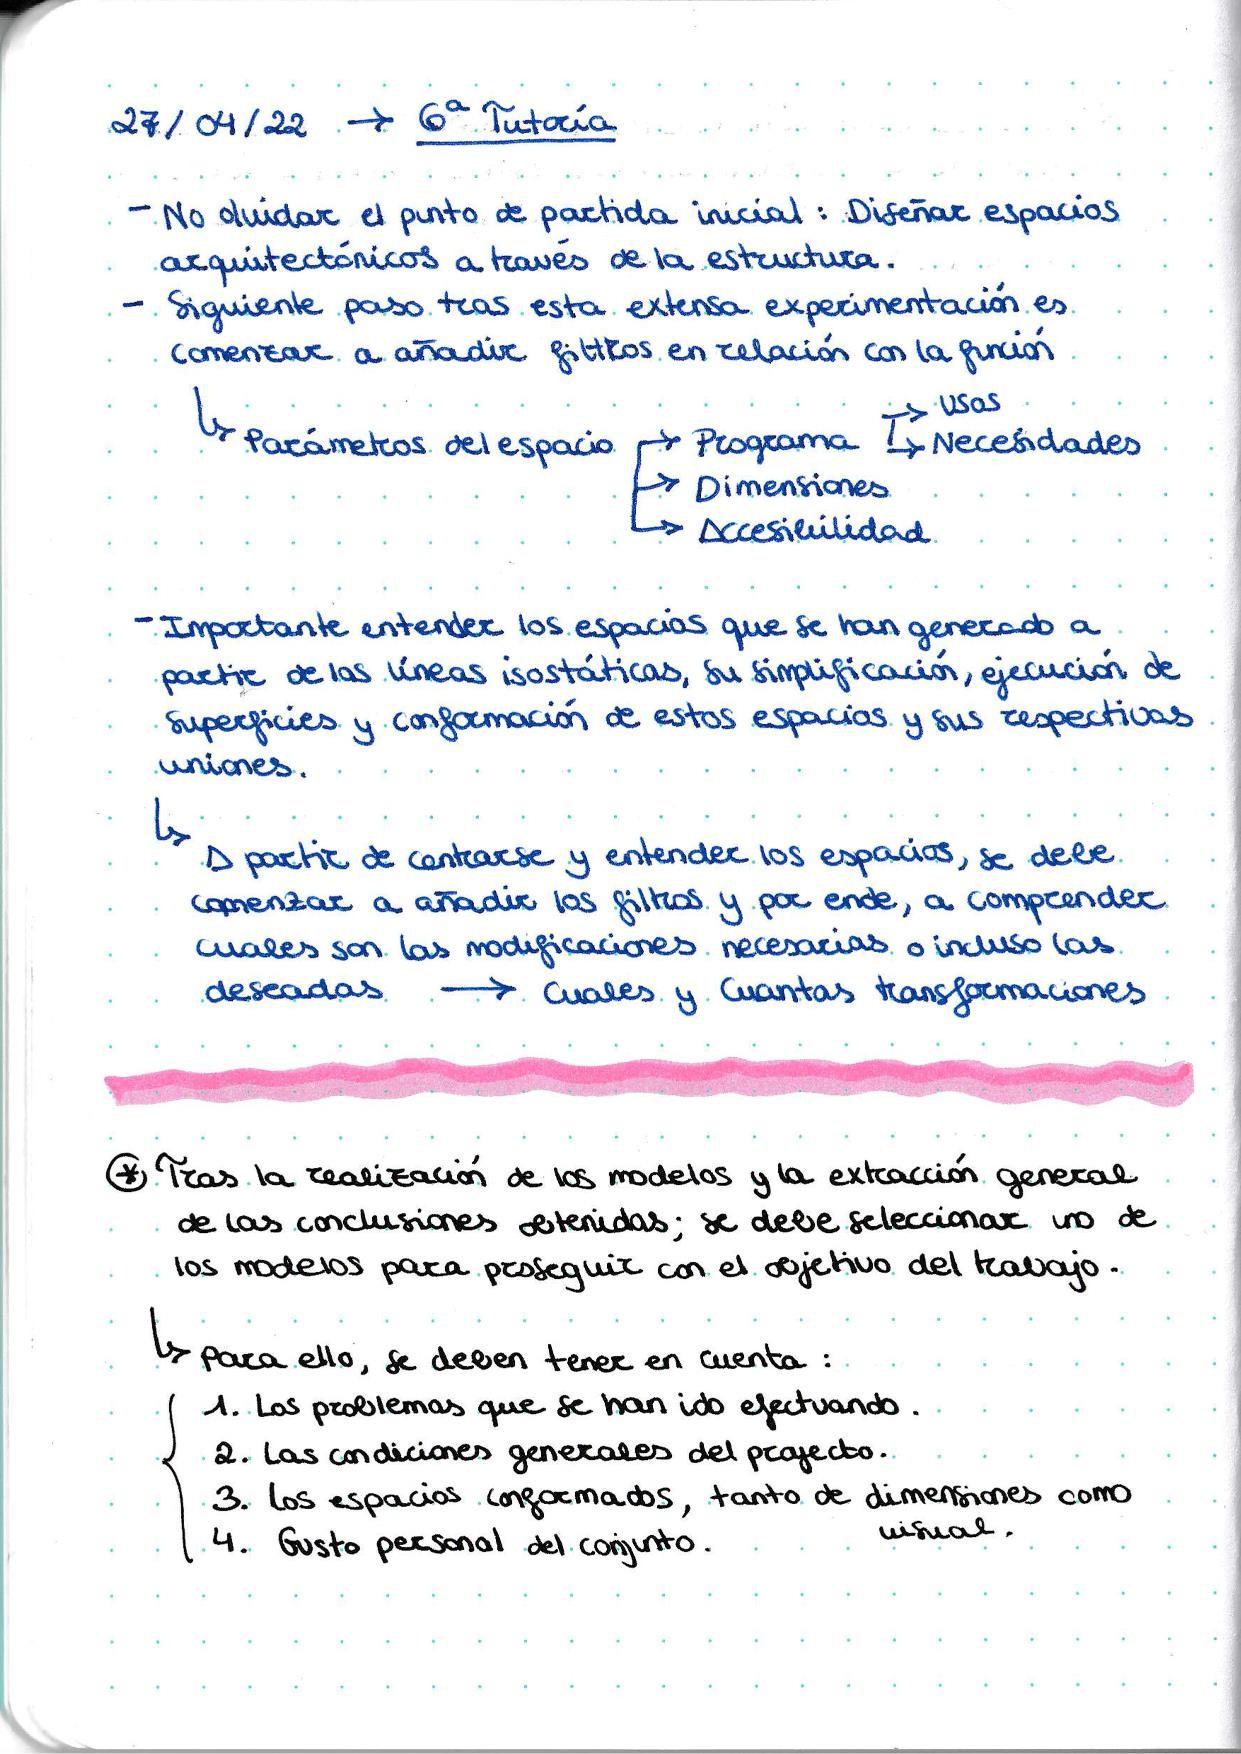 27/04/22 → 6ª Tutoría
- No olvidar el punto de partida inicial: Diseñar espacios
arquitectónicos a través de la estructura.
- Siguiente paso tras esta extensa experimentación es
comenzar a añadir filtros en relación con la función
↳ Parámetros del espacio → Programa → Usos
↳ Necesidades
→ Dimensiones
→ Accesibilidad
- Importante entender los espacios que se han generado a
partir de las líneas isostáticas, su simplificación, ejecución de
superficies y conformación de estos espacios y sus respectivas
uniones.
↳ A partir de centrarse y entender los espacios, se debe
comenzar a añadir los filtros y por ende, a comprender
cuales son las modificaciones necesarias o incluso las
deseadas → Cuales y Cuantas transformaciones
* Tras la realización de los modelos y la extracción general
de las conclusiones obtenidas; se debe seleccionar uno de
los modelos para proseguir con el objetivo del trabajo.
↳ Para ello, se deben tener en cuenta:
1. Los problemas que se han ido efectuando.
2. Las condiciones generales del proyecto.
3. Los espacios conformados, tanto de dimensiones como
visual.
4. Gusto personal del conjunto.